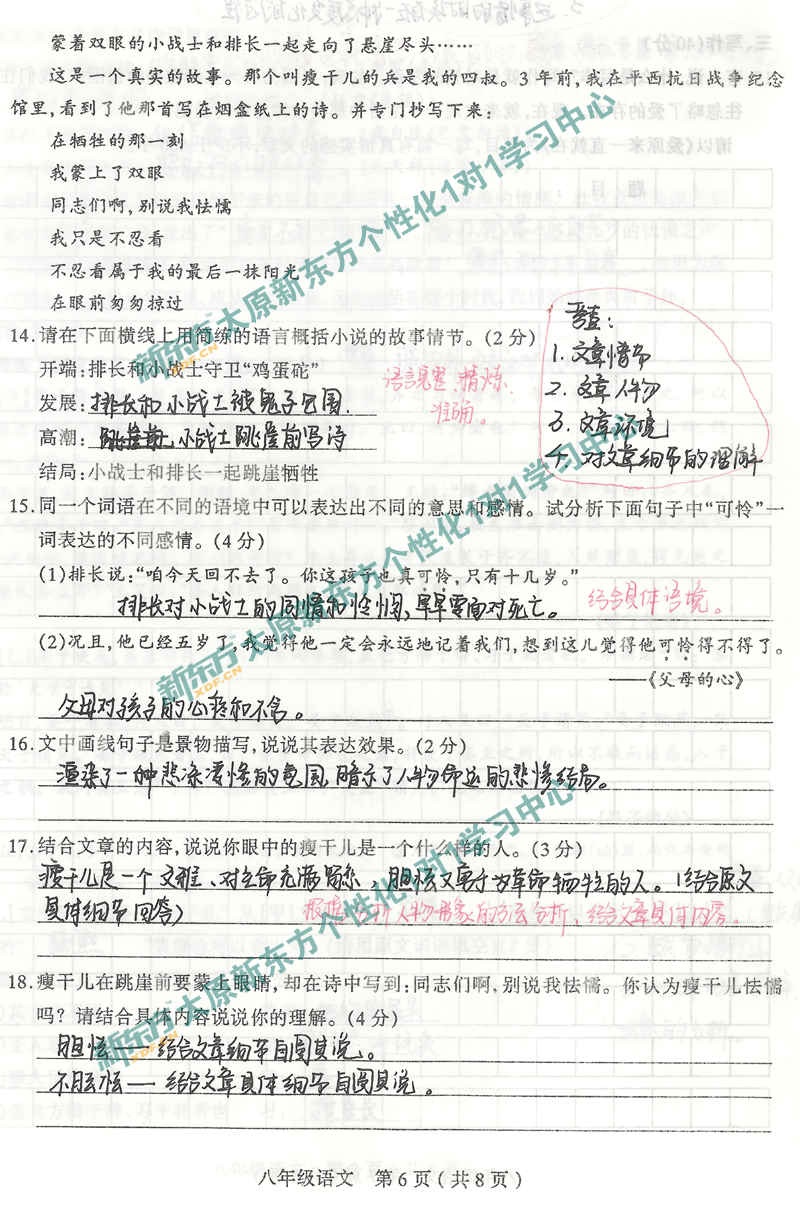 蒙着双眼的小战士和排长一起走向了悬崖尽头……
这是一个真实的故事。那个叫瘦干儿的兵是我的四叔。3 年前,我在平西抗日战争纪念
馆里,看到了他那首写在烟盒纸上的诗。并专门抄写下来:
在牺牲的那一刻
我蒙上了双眼
同志们啊,别说我怯懦
我只是不忍看
不忍看属于我的最后一抹阳光
在眼前匆匆掠过
14.请在下面横线上用简练的语言概括小说的故事情节。(2 分)
开端:排长和小战士守卫“鸡蛋砣”
发展:排长和小战士被鬼子包围.
高潮:小战士跳崖前写诗
结局:小战士和排长一起跳崖牺牲
语言完整、精炼、
准确。
考查:
1. 文章情节
2. 文章人物
3. 文章环境
4. 对文章细节的理解
15.同一个词语在不同的语境中可以表达出不同的意思和感情。试分析下面句子中“可怜”一
词表达的不同感情。(4 分)
(1)排长说:“咱今天回不去了。你这孩子也真可怜,只有十几岁。”
排长对小战士的同情和怜悯,早早要面对死亡。
结合具体语境。
(2)况且,他已经五岁了,我觉得他一定会永远地记着我们,想到这儿觉得他可怜得不得了。
——《父母的心》
父母对孩子的心疼和不舍。
16.文中画线句子是景物描写,说说其表达效果。(2 分)
渲染了一种悲凉凄惨的氛围,暗示了人物命运的悲惨结局。
17.结合文章的内容,说说你眼中的瘦干儿是一个什么样的人。(3 分)
瘦干儿是一个文雅、对生命充满留恋、胆怯又勇于为革命牺牲的人。(结合原文
具体细节回答)
根据分析人物形象的方法分析,结合文章具体内容。
18.瘦干儿在跳崖前要蒙上眼睛,却在诗中写到:同志们啊,别说我怯懦。你认为瘦干儿怯懦
吗?请结合具体内容说说你的理解。(4 分)
胆怯——结合文章细节自圆其说。
不胆怯——结合文章具体细节自圆其说。
八年级语文 第 6 页(共 8 页)
新东方太原新东方个性化1对1学习中心
XDF.CN
新东方太原新东方个性化1对1学习中心
XDF.CN
新东方太原新东方个性化1对1学习中心
XDF.CN